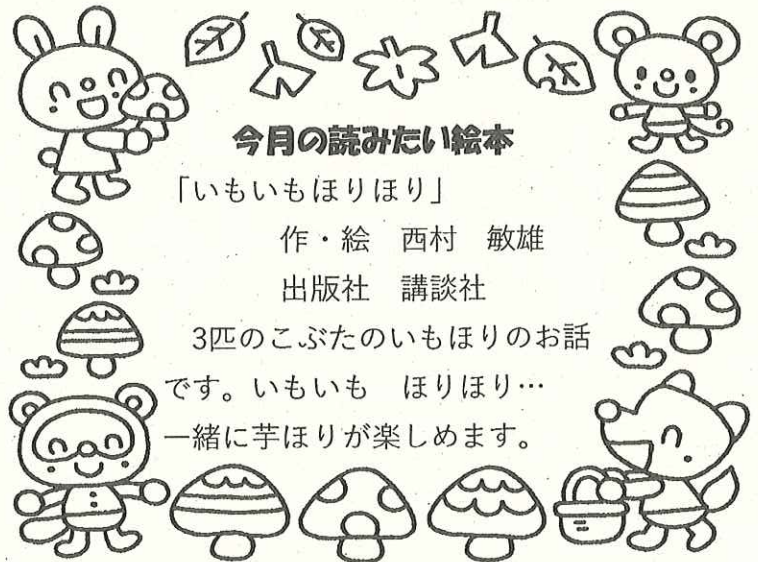 今月の読みたい絵本
「いもいもほりほり」
作・絵　西村　敏雄
出版社　講談社
3匹のこぶたのいもほりのお話
です。いもいも　ほりほり…
一緒に芋ほりが楽しめます。